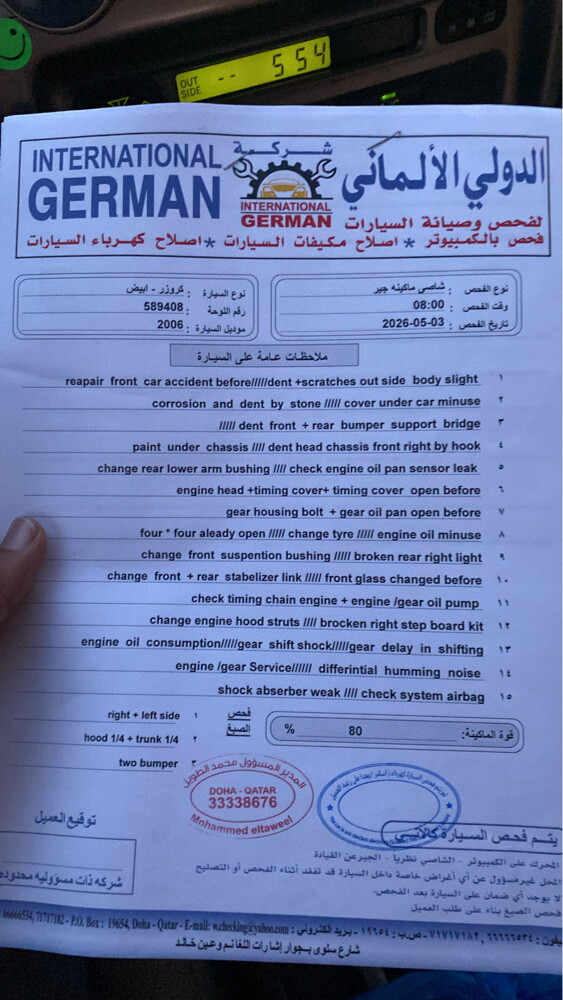 OUT SIDE -- 5 54
INTERNATIONAL GERMAN
شركة
INTERNATIONAL
GERMAN
الدولي الألماني
لفحص وصيانة السيارات
فحص بالكمبيوتر * اصلاح مكيفات السيارات * اصلاح كهرباء السيارات
نوع الفحص : شاصى ماكينه جير
وقت الفحص : 08:00
تاريخ الفحص : 2026-05-03
نوع السيارة : كروزر - ابيض
رقم اللوحة : 589408
موديل السيارة : 2006
ملاحظات عامة على السيارة
١ reapair front car accident before/////dent +scratches out side body slight
٢ corrosion and dent by stone ///// cover under car minuse
٣ ///// dent front + rear bumper support bridge
٤ paint under chassis //// dent head chassis front right by hook
٥ change rear lower arm bushing //// check engine oil pan sensor leak
٦ engine head +timing cover+ timing cover open before
٧ gear housing bolt + gear oil pan open before
٨ four * four aleady open ///// change tyre ///// engine oil minuse
٩ change front suspention bushing ///// broken rear right light
١٠ change front + rear stabelizer link ///// front glass changed before
١١ check timing chain engine + engine /gear oil pump
١٢ change engine hood struts //// brocken right step board kit
١٣ engine oil consumption/////gear shift shock/////gear delay in shifting
١٤ engine /gear Service////// differintial humming noise
١٥ shock abserber weak //// check system airbag
فحص الصبغ
١ right + left side
٢ hood 1/4 + trunk 1/4
٣ two bumper
قوة الماكينة: 80 %
المدير المسؤول محمد الطويل
DOHA - QATAR
33338676
Mohammed eltaweel
توقيع العميل
يتم فحص السيارة كالآتي
المحرك على الكمبيوتر - الشاصي نظريا - الجير عن القيادة
المحل غير مسؤول عن أي أغراض خاصة داخل السيارة قد تفقد أثناء الفحص أو التصليح
لا يوجد أي ضمان على السيارة بعد الفحص.
فحص الصبغ بناء على طلب العميل
شركة ذات مسؤوليه محدوده
يفون : ٦٦٦٦٦٥٣٤ ,٧١٧١٧١٨٢ - ص.ب : ١٩٦٥٤ - بريد الكتروني : 66666534, 71717182 - P.O. Box : 19654, Doha - Qatar - E-mail: w.checking@yahoo.com
شارع سلوى بجوار إشارات اللغانم وعين خالد